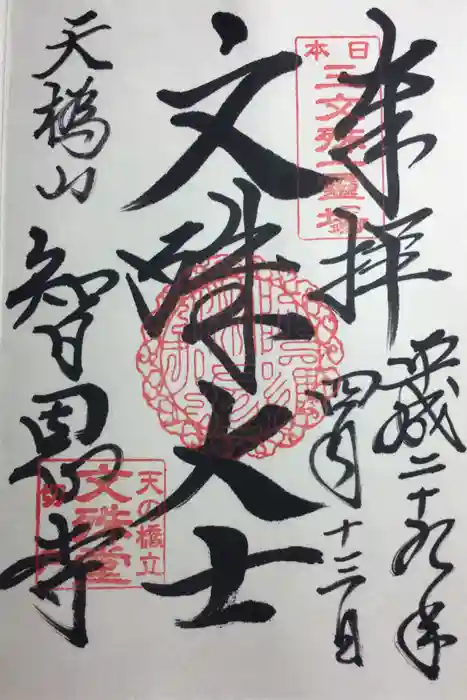 奉拝
平成二十九年
四月十三日
日本
三文殊霊場
文殊大士
天橋山
智恩寺
天の橋立
切戸
文殊堂